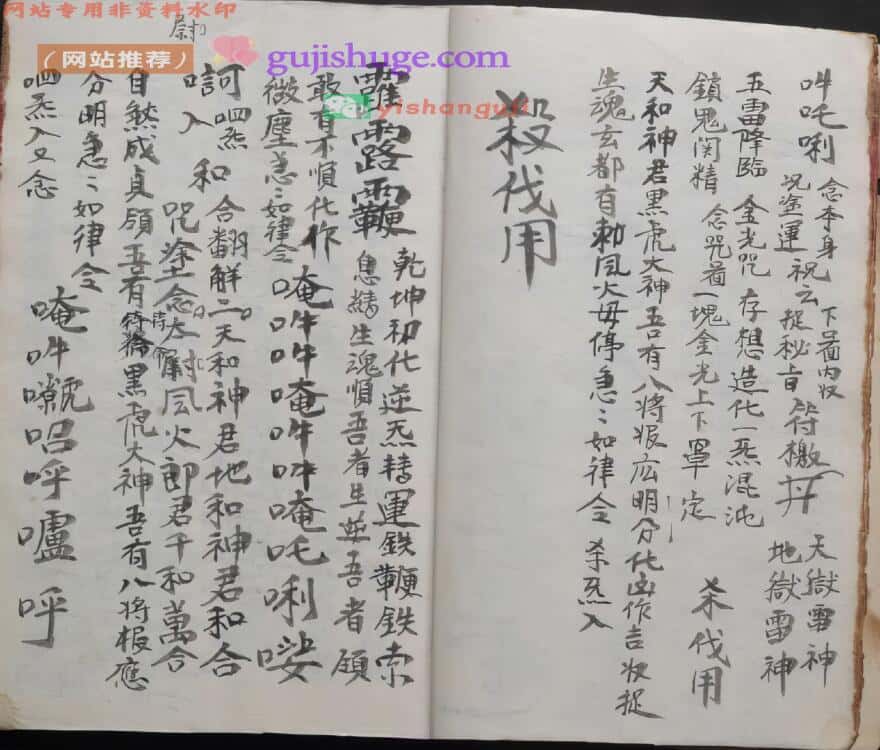 网站专用非资料水印
（网站推荐）
gujishuge.com
yishanguji
吽吒唎 念本身 下罱内收
咒塗運 祝云捉秘旨 符檄 天獄雷神
地獄雷神
五雷降臨 金光咒 存想造化一炁混沌
鎖鬼関精 念咒罱一塊金光上下罩定 杀伐用
天和神君黑虎大神吾有八将报应明分化凶作吉收捉
生魂玄都有勅風火毋停急〻如律令 杀炁入
殺伐用
囉霹靂鞭 乾坤初化逆炁转運鉄鞭鉄索
息精生魂順吾者生逆吾者顛
敢有不順化作
微塵急〻如律令 唵吽吽唵吽吽唵吒唎嘙
訶呬炁 合翻解二天和神君地和神君和合
吸入 和 咒塗念太尉風火郎君千和萬合
尉
自然成真頋吾有符籙黑虎大神吾有八将报應
分明急〻如律令
呬炁入又念 唵吽𠿒呂呼嚧呼